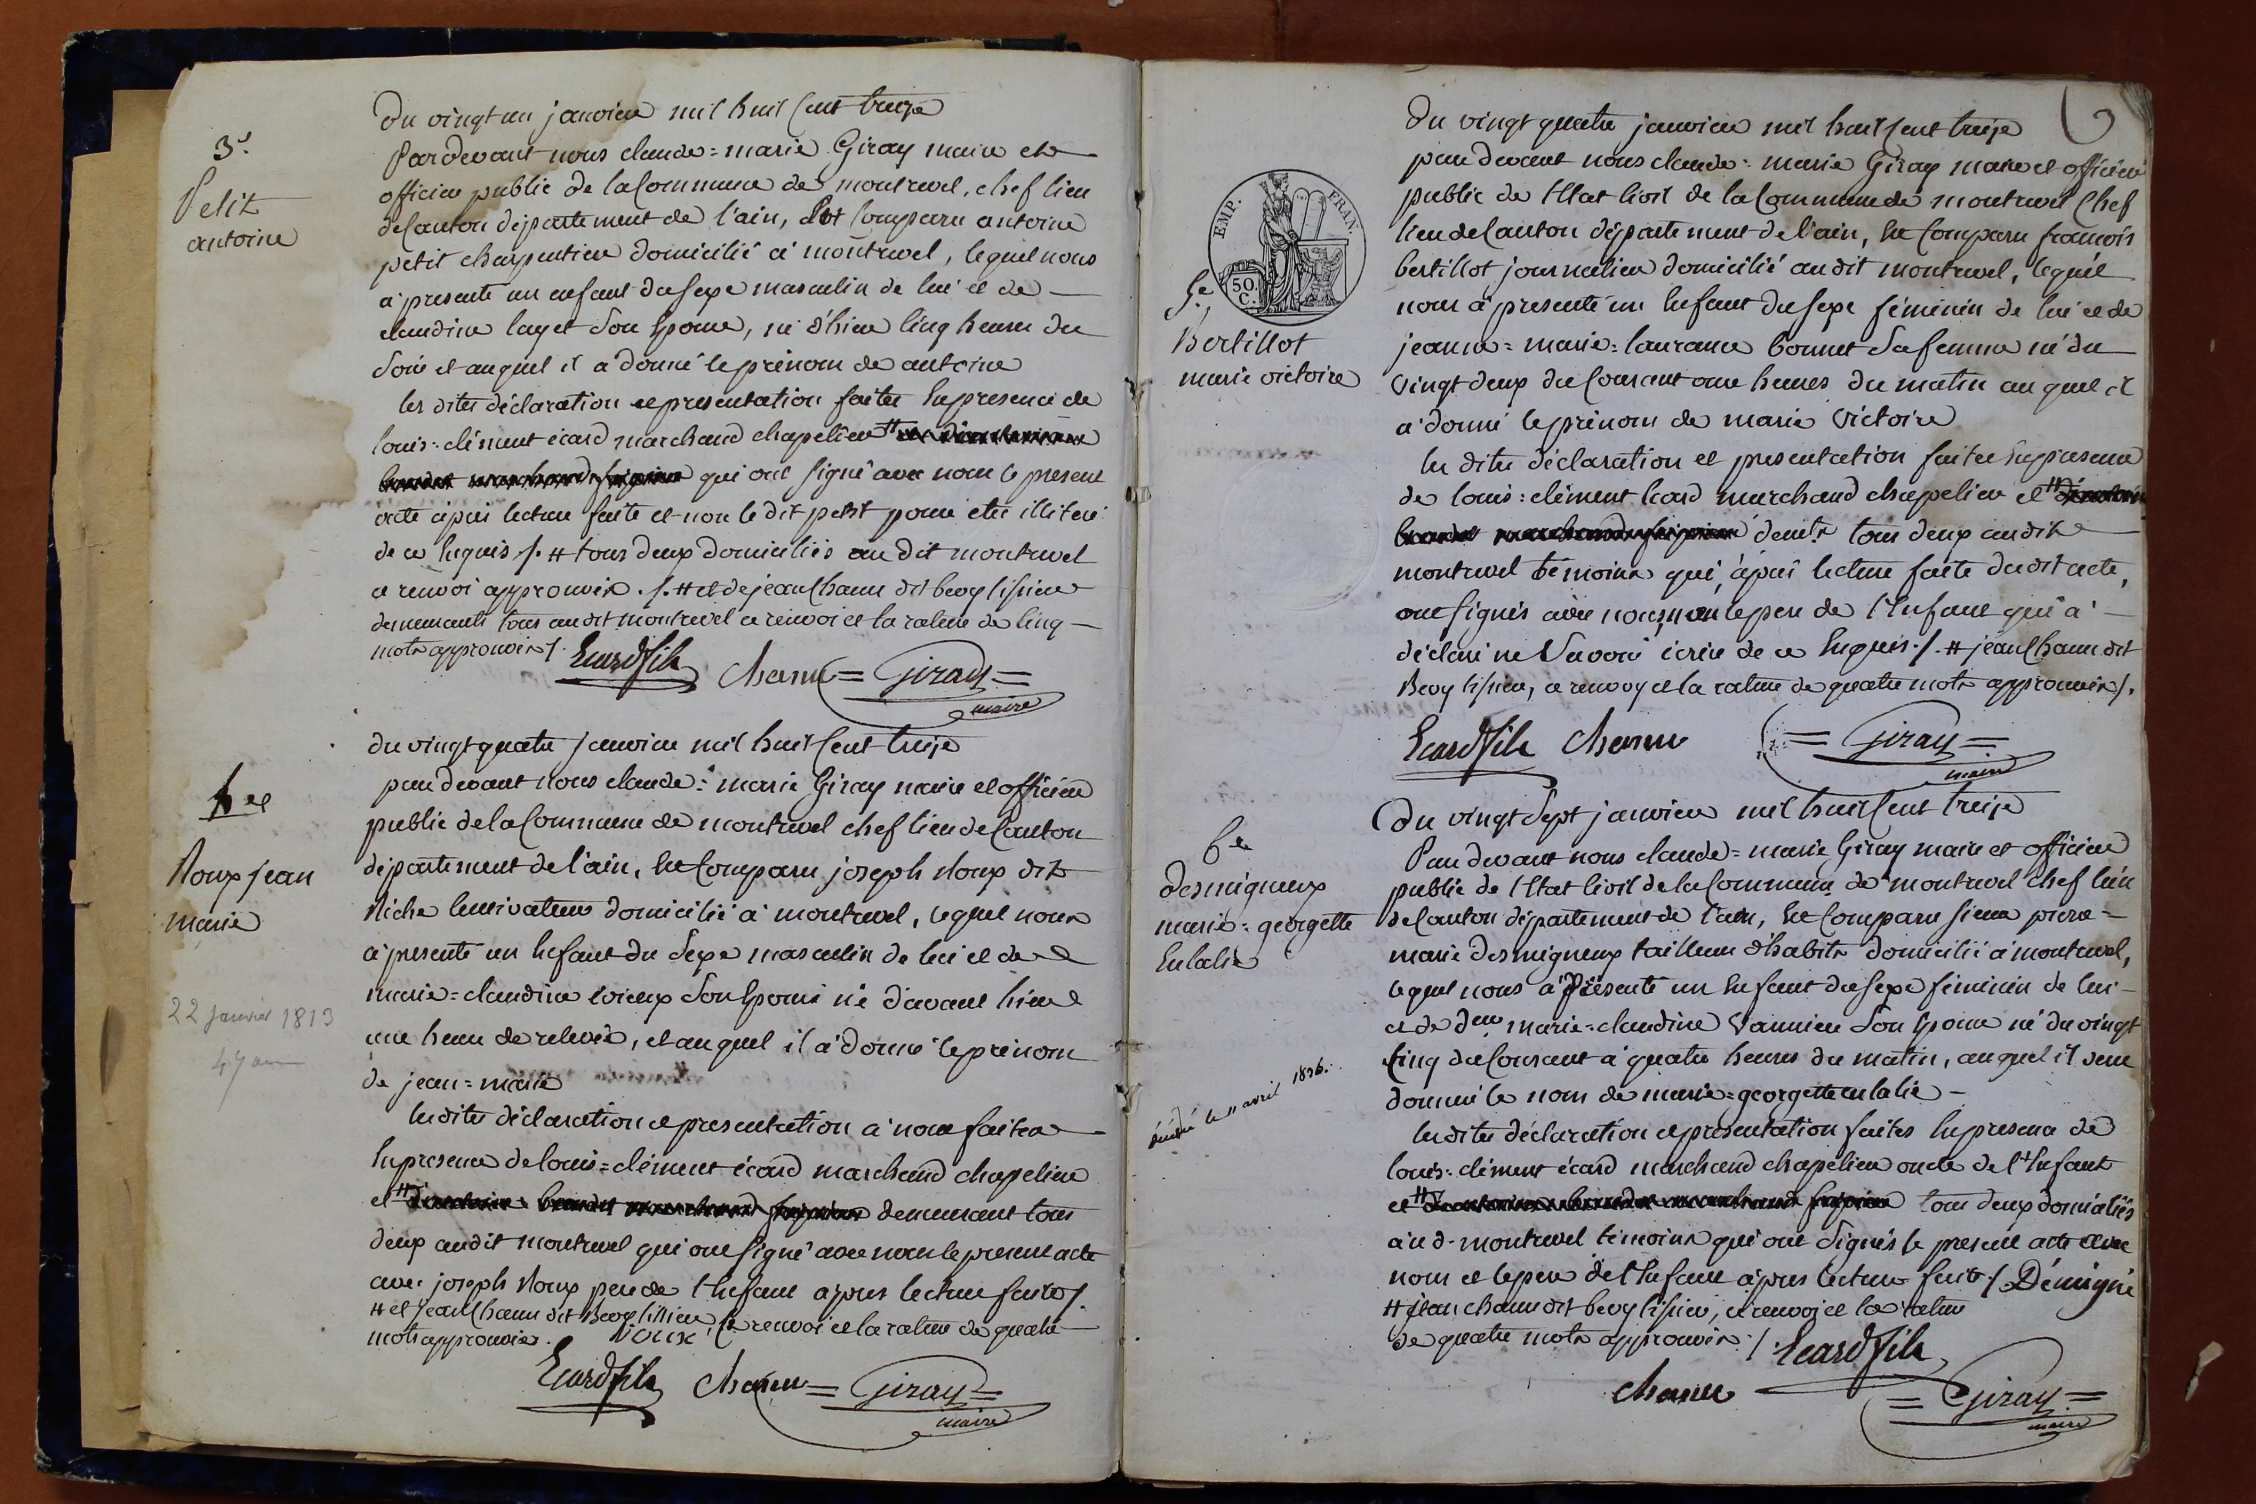 3e.
Petit
antoine
Du vingt un janvier mil huit Cent treize
Pardevant nous claude=marie Giray maire et
officier public de la Commune de montrevel, chef lieu
de Canton département de l'ain, Est Comparu antoine
petit charpentier domicilié à montrevel, lequel nous
a présenté un enfant du Sexe masculin de lui et de
claudine layet Son Epouse, né d'hier Cinq heures du
Soir et auquel il a donné le prénom de antoine
les dites déclaration et presentation faites En presence de
louis=clément écard marchand chapelier #
qui ont Signé avec nous le present
acte après lecture faite et non le dit petit pour etre illiteré
de ce Enquis ./. # tous deux domiciliés au dit montrevel
ce renvoi approuvés ./. # et de jean Chanu dit beoy
demeurants tous au dit montrevel ce renvoi et la rature de Cinq
mots approuvés /.
Ecard fils Chanu = Giray =
maire
4ee
Noux jean
marie
22 janvier 1813
47 ans
du vingt quatre janvier mil huit Cent treize
par devant nous claude=marie Giray maire et officier
public de la Commune de montrevel chef lieu de Canton
département de l'ain, Est Comparu joseph Noux dit
Niche Cultivateur domicilié à montrevel, lequel nous
a présenté un Enfant du Sexe masculin de lui et de
marie=claudine Son Epouse né d'avant hier
une heure de relevée, et auquel il a donné le prénom
de jean=marie
les dites déclaration et presentation a nous faites
En presence de louis=clément écard marchand chapelier
et # demeurant tous
deux audit montrevel qui ont Signé avec nous le present acte
avec joseph Noux pere de l'Enfant après lecture faite /.
# et jean Chanu dit Beoy ce renvoi et la rature de quatre
mots approuvés. Noux
Ecard fils Chanu = Giray =
maire
EMP. FRAN.
50 C.
5e.
Bertillot
marie victoire
Du vingt quatre janvier mil huit Cent treize
par devant nous claude=marie Giray maire et officier
public de l'Etat Civil de la Commune de montrevel Chef
lieu de Canton département de l'ain, Est Comparu francois
bertillot journalier domicilié audit montrevel, lequel
nous a présenté un Enfant du Sexe féminin de lui et de
jeanne=marie=laurance bonnet Sa femme né du
vingt deux du Courant onze heures du matin auquel il
a donné le prénom de marie Victoire
les dites déclaration et presentation faites En presence
de louis=clément Ecard marchand chapelier et #
demts tous deux audit
montrevel témoins qui, après lecture faite dudit acte,
ont Signés avec nous, non le pere de l'Enfant qui a
déclaré ne Savoir écrire de ce Enquis ./. # jean Chanu dit
Beoy ce renvoy et la rature de quatre mots approuvés /.
Ecard fils Chanu = Giray =
maire
6e
Desmigneux
marie=georgette
Eulalie
le 11 avril 1836.
Du vingt Sept janvier mil huit Cent treize
Par devant nous claude=marie Giray maire et officier
public de l'Etat Civil de la Commune de montrevel Chef lieu
de Canton département de l'ain, Est Comparu Sieur pierre=
marie desmigneux tailleur d'habits domicilié à montrevel,
lequel nous a Présenté un Enfant du Sexe féminin de lui
et de dme marie=claudine Vannier Son Epouse né du vingt
Cinq du Courant à quatre heures du matin, auquel il veut
donner le nom de marie=georgette eulalie
les dites déclaration et presentation faites En presence de
louis=clément écard marchand chapelier oncle de l'Enfant
et # tous deux domiciliés
aud. montrevel témoins qui ont Signés le present acte avec
nous et le pere de l'Enfant après lecture faite / Démigné
# jean chanu dit beoy ce renvoi et la rature
de quatre mots approuvés ./
Ecard fils
Chanu = Giray =
maire